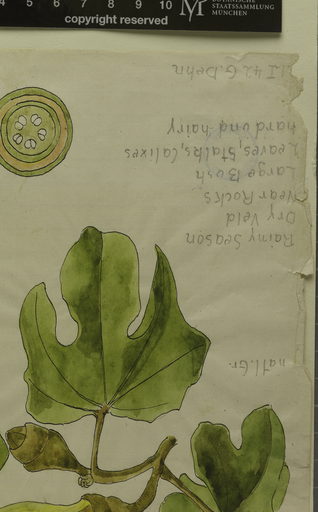 4 5 6 7 8 9 10
copyright reserved
BOTANISCHE
STAATSSAMMLUNG
MÜNCHEN
nat. Gr.
Rainy Season
Dry Veld
near Rocks
Large Bush
Leaves, Stalks, Calixes
hard and hairy
I 42 G. Dehn